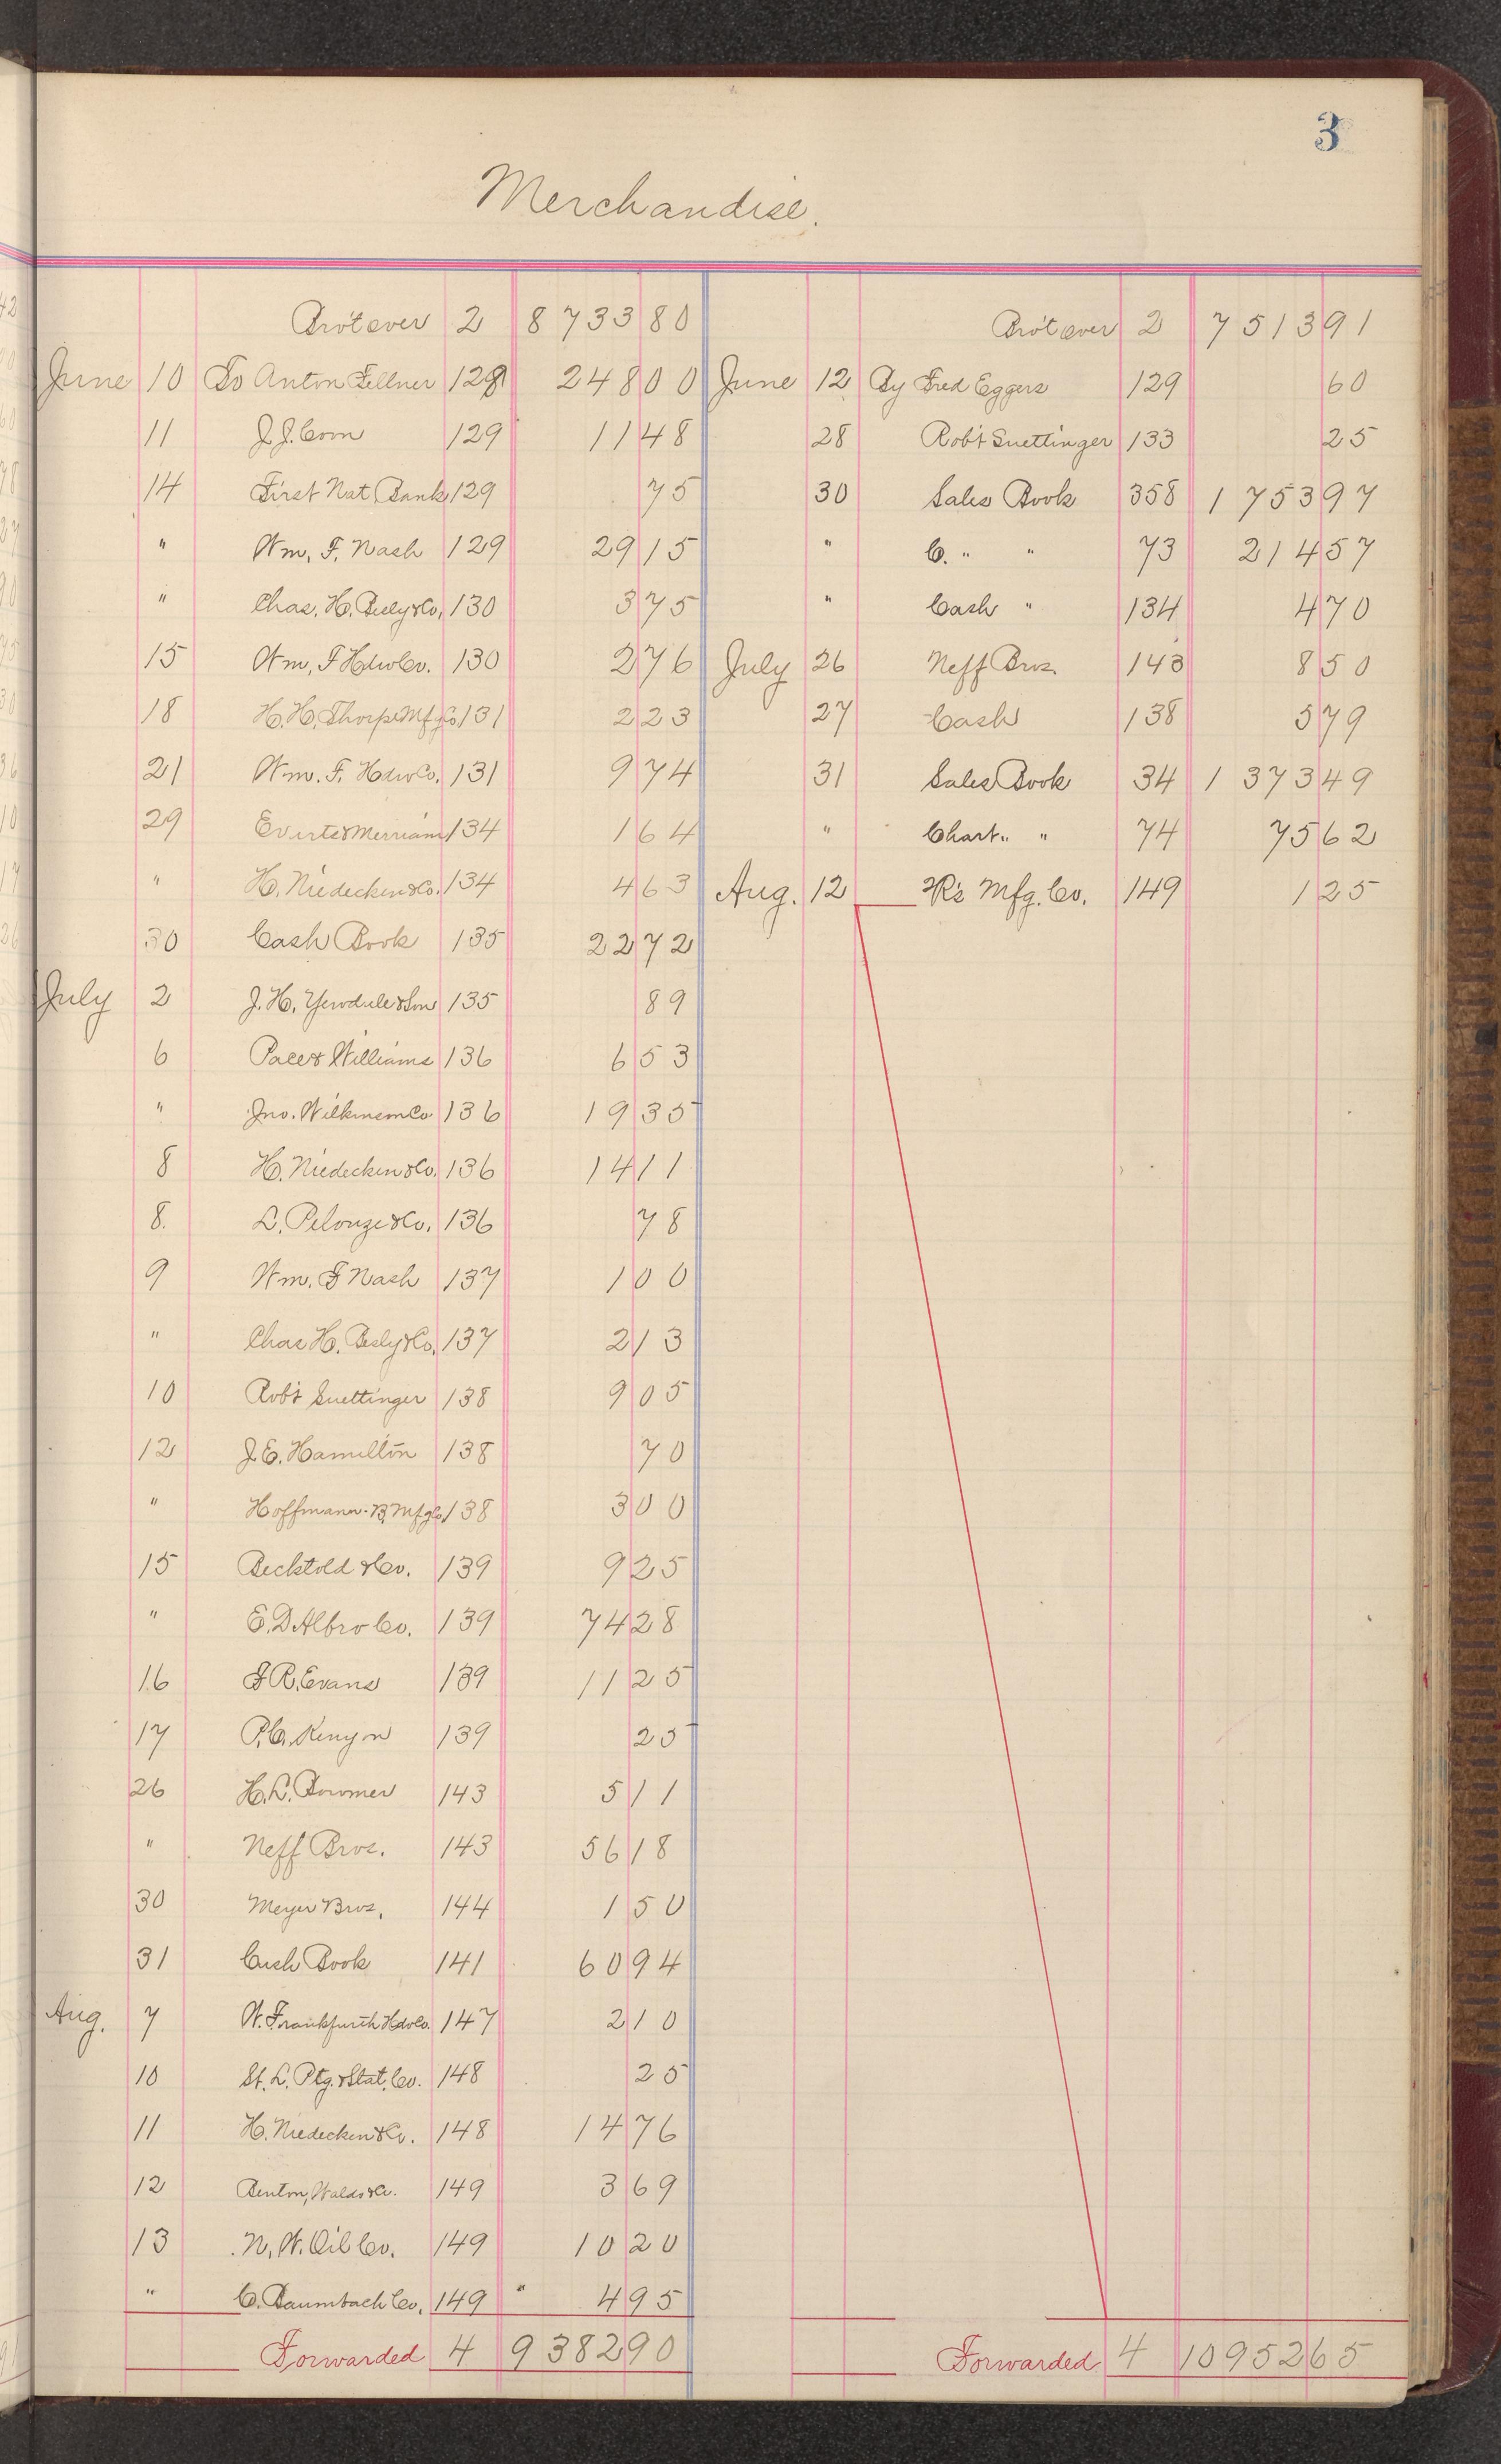 3
Merchandise.
Bro't over 2 8733 80
June 10 To Anton Fellner 128 248 00
11 J. J. Corn 129 11 48
14 First Nat Bank 129 75
" Wm. F. Nash 129 29 15
" Chas. H. Besly & Co. 130 3 75
15 Wm. F Hdw Co. 130 2 76
18 H. H. Thorpe Mfg Co 131 2 23
21 Wm. F. Hdw Co. 131 9 74
29 Everts & Merriam 134 1 64
" H. Niedecken & Co. 134 4 63
30 Cash Book 135 22 72
July 2 J. H. Yewdale & Son 135 89
6 Pace & Williams 136 6 53
" Jno. Wilkinson Co 136 19 35
8 H. Niedecken & Co. 136 14 11
8. L. Pelouze & Co. 136 78
9 Wm. F Nash 137 1 00
" Chas H. Besly & Co. 137 2 13
10 Rob't Suettinger 138 9 05
12 J. E. Hamilton 138 70
" Hoffmann-B. Mfg Co. 138 3 00
15 Becktold & Co. 139 9 25
" E. D. Albro Co. 139 74 28
16 F R. Evans 139 11 25
17 P. C. Kenyon 139 25
26 H. L. Bowmer 143 5 11
" Neff Bros. 143 56 18
30 Meyer Bros. 144 1 50
31 Cash Book 141 60 94
Aug. 7 W. Frankfurth Hdw Co. 147 2 10
10 St. L. Ptg. & Stat. Co. 148 25
11 H. Niedecken & Co. 148 14 76
12 Benton, Waldo & Co. 149 3 69
13 N. W. Oil Co. 149 10 20
" C. Baumbach Co. 149 " 4 95
Forwarded 4 9382 90
Bro't over 2 7513 91
June 12 By Fred Eggers 129 60
28 Rob't Suettinger 133 25
30 Sales Book 358 1753 97
" C. " " 73 214 57
" Cash " 134 4 70
July 26 Neff Bros. 143 8 50
27 Cash 138 5 79
31 Sales Book 34 1373 49
" Chart. " " 74 75 62
Aug. 12 Mfg. Co. 149 1 25
Forwarded 4 10952 65